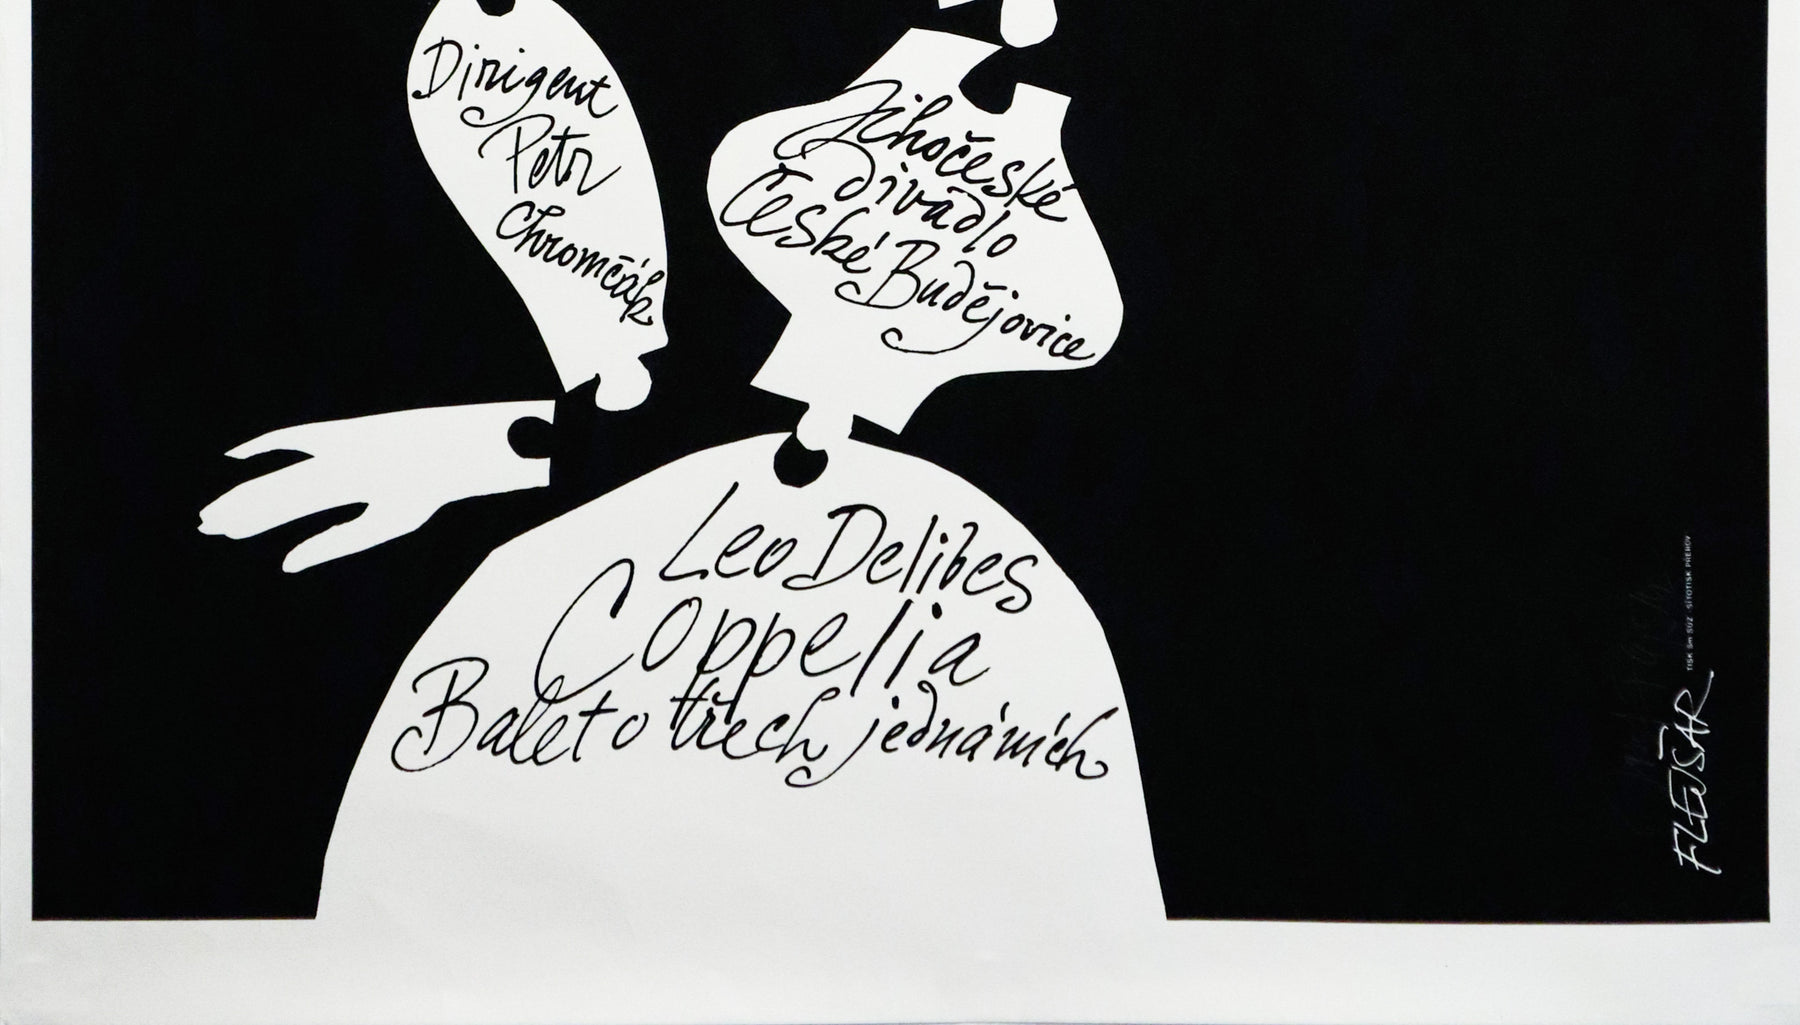 Dirigent
Petr
Chromčák
Jihočeské
divadlo
České Budějovice
Leo Delibes
Coppelia
Balet o třech jednáních
FLEJŠAR
TISK Sm SÚZ SÍTOTISK PŘEROV